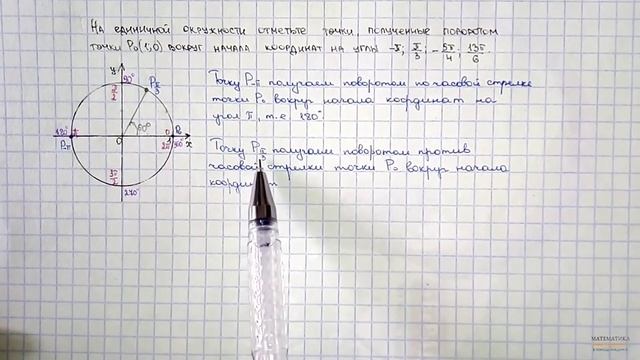 На единичной окружности отметьте точки, полученные поворотом
точки P₀(1;0) вокруг начала координат на углы -π; π/3; -5π/4; 13π/6.
y 90°
π/2
P π/3
Точку P-π получаем поворотом по часовой стрелке
точки P₀ вокруг начала координат на
угол π, т.е. 180°.
60°
180° π 0 P₀
P-π 0 1 2π 360° x
Точку P π/3 получаем поворотом против
часовой стрелки точки P₀ вокруг начала
координат
3π/2
270°
МАТЕМАТИКА